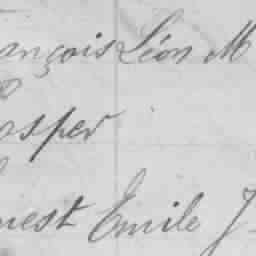 ançois Léon M
osper
nest Emile J